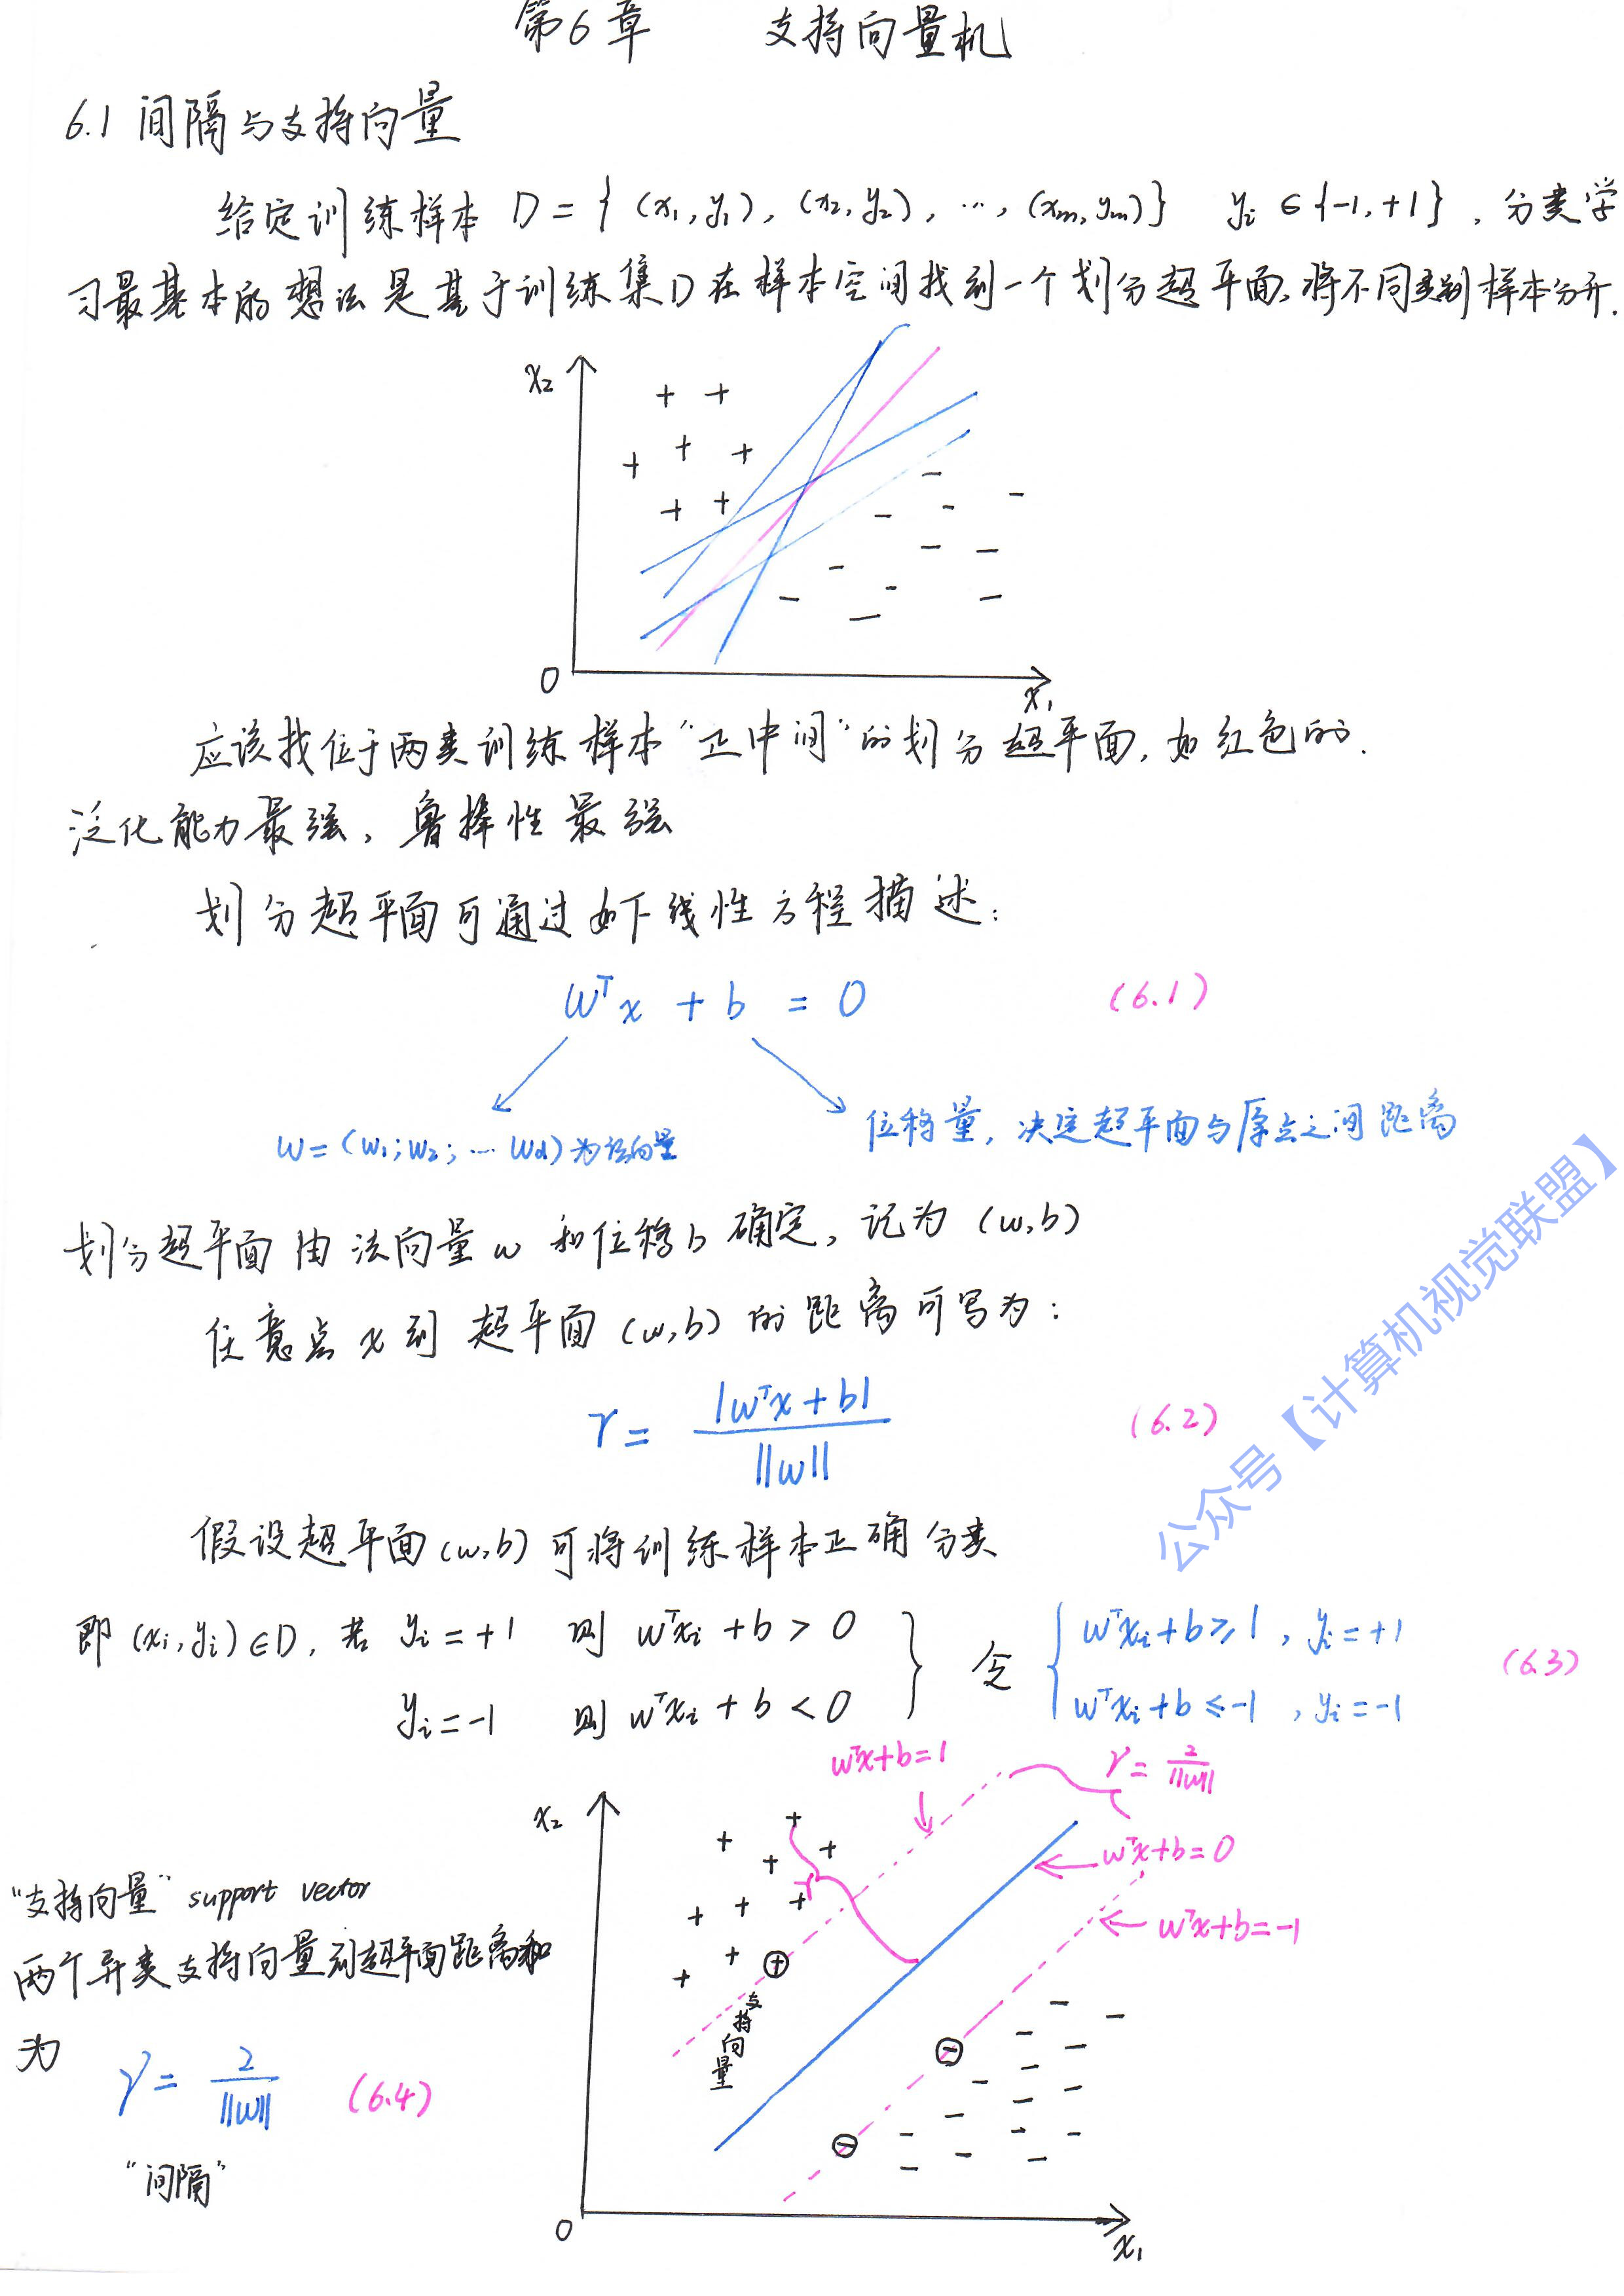 第6章 支持向量机
6.1 间隔与支持向量
给定训练样本 D={(x₁,y₁),(x₂,y₂),…,(xm,ym)} yᵢ∈{-1,+1},分类学
习最基本的想法是基于训练集D在样本空间找到一个划分超平面,将不同类别样本分开.
x₂
0
x₁
应该找位于两类训练样本“正中间”的划分超平面,如红色的.
泛化能力最强,鲁棒性最强
划分超平面可通过如下线性方程描述:
wᵀx + b = 0 (6.1)
w=(w₁;w₂;…wd)为法向量
位移量,决定超平面与原点之间距离
划分超平面由法向量w和位移b确定,记为(w,b)
任意点x到超平面(w,b)的距离可写为:
r = |wᵀx+b| / ||w|| (6.2)
假设超平面(w,b)可将训练样本正确分类
即(xᵢ,yᵢ)∈D,若 yᵢ=+1 则 wᵀxᵢ+b>0
yᵢ=-1 则 wᵀxᵢ+b<0
令 { wᵀxᵢ+b≥1,yᵢ=+1
wᵀxᵢ+b≤-1,yᵢ=-1 (6.3)
wᵀx+b=1
γ= 2/||w||
x₂
wᵀx+b=0
wᵀx+b=-1
r
支持向量
“支持向量” support vector
两个异类支持向量到超平面距离和
为
γ= 2/||w|| (6.4)
“间隔”
0
x₁
公众号【计算机视觉联盟】